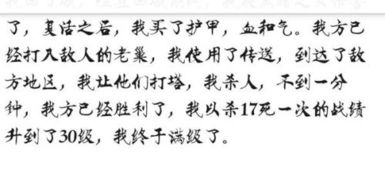 了，复活之后，我买了护甲，血和气。我方已
经打入敌人的老巢，我使用了传送，到达了敌
方地区，我让他们打塔，我杀人，不到一分
钟，我方已经胜利了，我以杀17死一次的战绩
升到了30级，我终于满级了。